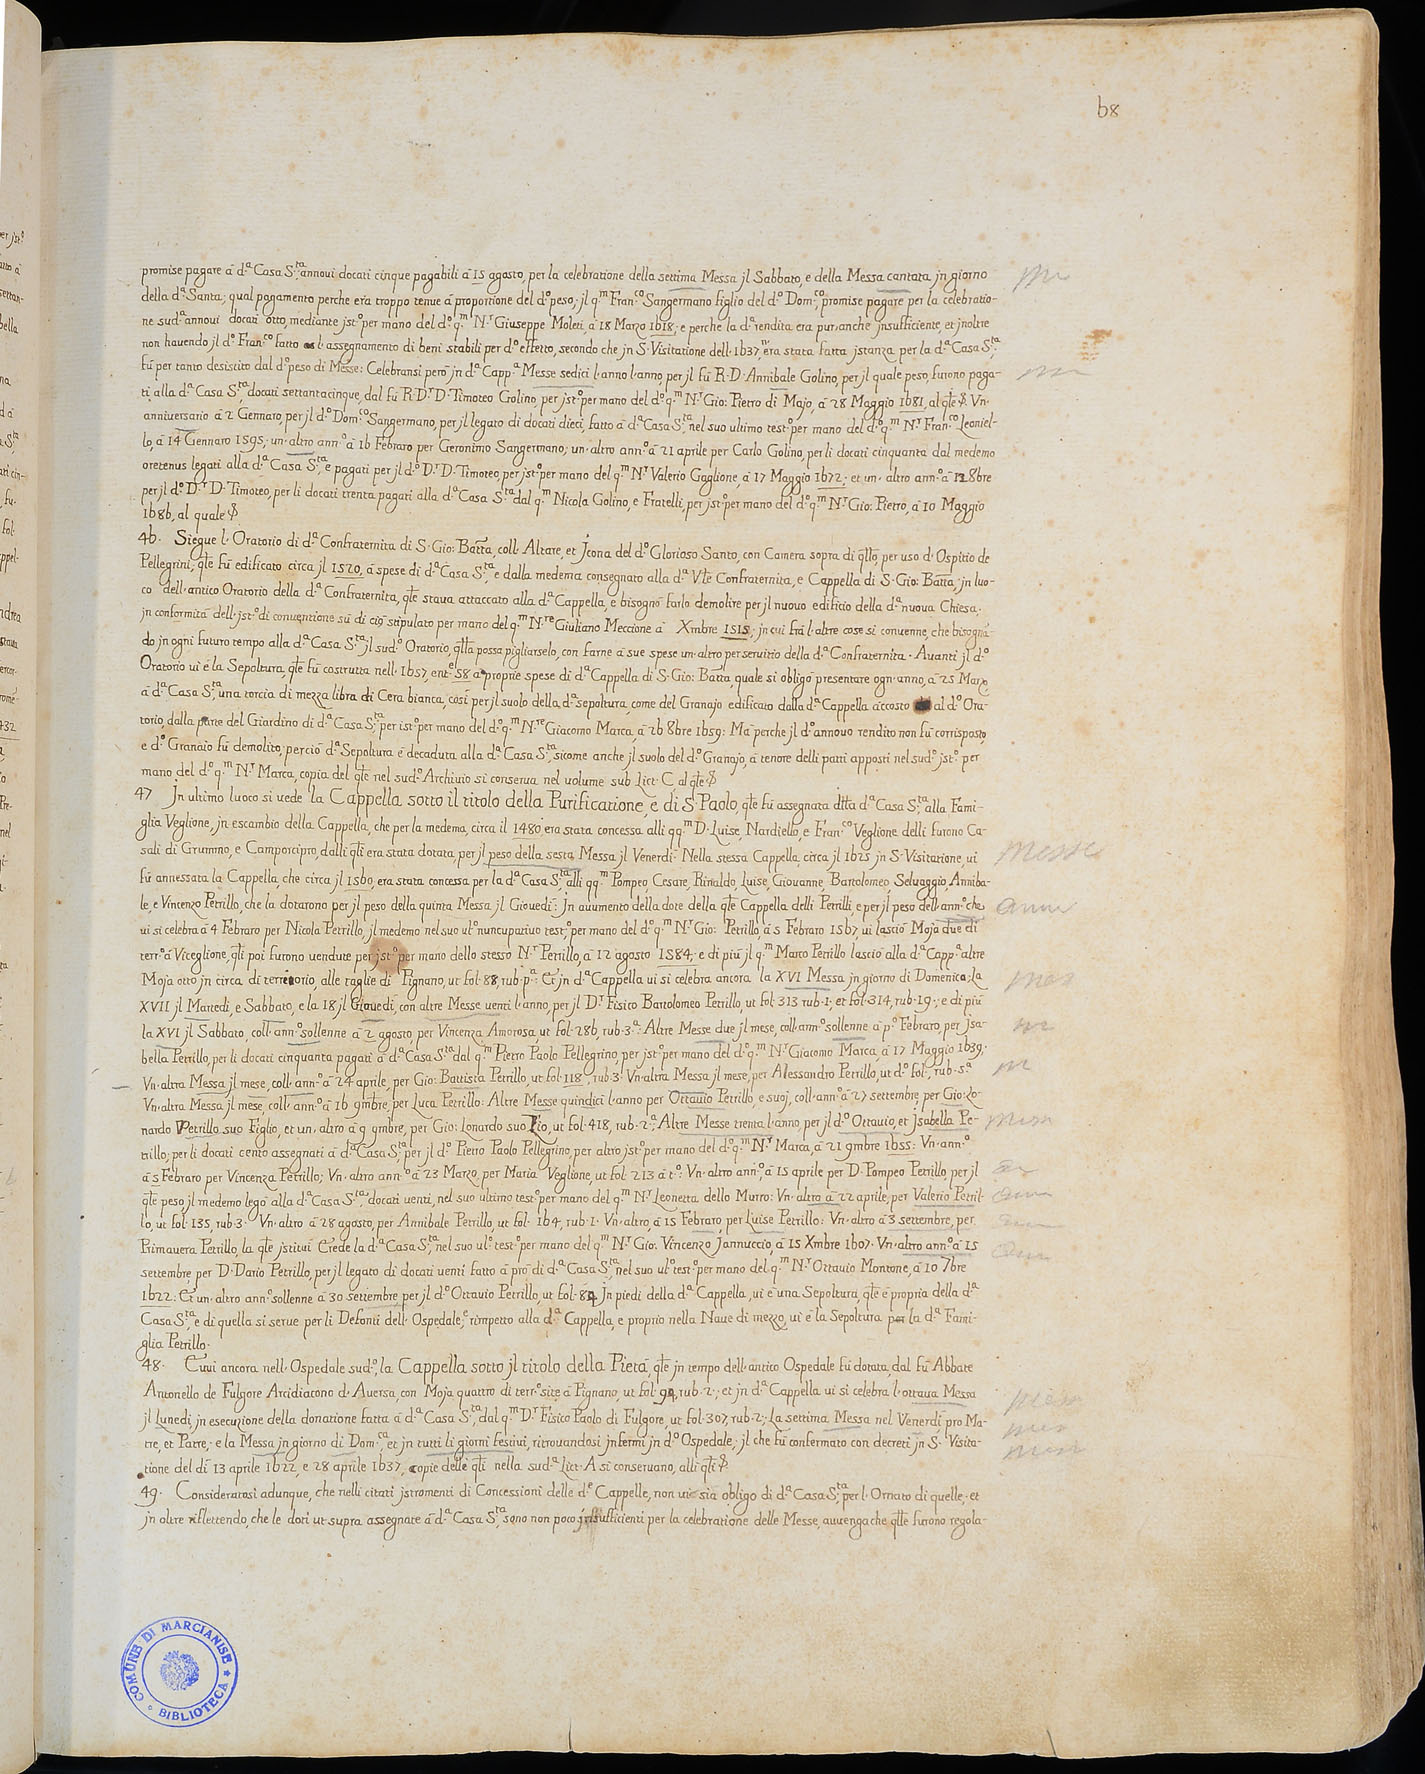 b8
promise pagare à d.ª Casa S.ta annoui docati cinque pagabili à 15 agosto, per la celebratione della settima Messa jl Sabbato, e della Messa cantata jn giorno
della d.ª Santa; qual pagamento perche era troppo tenue à proportione del d.º peso; jl q.m Fran.co Sangermano figlio del d.º Dom.co, promise pagare per la celebratio-
ne sud.ª annoui docati otto, mediante jst.º per mano del d.º q.m N.r Giuseppe Moleti, à 18 Marzo 1618; e perche la d.ª rendita era pur anche jnsufficiente, et jnoltre
non hauendo jl d.º Fran.co fatto l'assegnamento di beni stabili per d.º effetto, secondo che jn S. Visitatione dell' 1637, n'era stata fatta jstanza per la d.ª Casa S.ta,
fù per tanto desistito dal d.º peso di Messe: Celebransi però jn d.ª Capp.ª Messe sedici l'anno l'anno, per jl fù R. D. Annibale Golino, per jl quale peso, furono paga-
ti, alla d.ª Casa S.ta, docati settantacinque, dal fù R. D.r D. Timoteo Golino per jst.º per mano del d.º q.m N.r Gio: Pietro di Majo, à 28 Maggio 1681, al qle. Vn
anniuersario à 2 Gennaro, per jl d.º Dom.co Sangermano, per jl legato di docati dieci, fatto à d.ª Casa S.ta, nel suo ultimo test.º per mano del d.º q.m N.r Fran.co Leoniel-
lo, à 14 Gennaro 1595; un altro ann.º à 16 Febraro per Geronimo Sangermano; un altro ann.º à 21 aprile per Carlo Golino, per li docati cinquanta dal medemo
oretenus legati alla d.ª Casa S.ta, e pagati per jl d.º D.r D. Timoteo, per jst.º per mano del q.m N.r Valerio Gaglione, à 17 Maggio 1672; et un altro ann.º à 12 8bre
per jl d.º D.r D. Timoteo, per li docati trenta pagati alla d.ª Casa S.ta dal q.m Nicola Golino, e Fratelli, per jst.º per mano del d.º q.m N.r Gio: Pietro, à 10 Maggio
1686, al quale
46. Siegue l'Oratorio di d.ª Confraternita di S. Gio: Batta, coll'Altare, et Jcona del d.º Glorioso Santo, con Camera sopra di qllo, per uso d'Ospitio de
Pellegrini; qle fù edificato circa jl 1520, à spese di d.ª Casa S.ta, e dalla medema consegnato alla d.ª Vle Confraternita, e Cappella di S. Gio: Batta, jn luo-
co dell'antico Oratorio della d.ª Confraternita, qle staua attaccato alla d.ª Cappella, e bisognò farlo demolire per jl nuouo edificio della d.ª nuoua Chiesa,
jn conformità dell'jst.º di conuentione sù di ciò stipulato per mano del q.m N.re Giuliano Meccione à Xmbre 1515; jn cui frà l'altre cose si conuenne, che bisognã
do jn ogni futuro tempo alla d.ª Casa S.ta, jl sud.º Oratorio, qlla possa pigliarselo, con farne à sue spese un altro per seruitio della d.ª Confraternita. Auanti jl d.º
Oratorio ui è la Sepoltura, qle fù costrutta nell' 1657, ent.e 58 a proprie spese di d.ª Cappella di S. Gio: Batta, quale si obligò presentare ogn'anno, à 25 Marzo,
à d.ª Casa S.ta una torcia di mezza libra di Cera bianca, così per jl suolo della d.ª sepoltura, come del Granajo edificato dalla d.ª Cappella accosto al d.º Ora-
torio, dalla parte del Giardino di d.ª Casa S.ta, per ist.º per mano del d.º q.m N.re Giacomo Marca, à 26 8bre 1659: Mà perche jl d.º annouo rendito non fù corrisposto,
e d.º Granaio fù demolito, perciò d.ª Sepoltura è decaduta alla d.ª Casa S.ta, sicome anche jl suolo del d.º Granajo, à tenore delli patti apposti nel sud.º jst.º per
mano del d.º q.m N.r Marca, copia del qle nel sud.º Archiuio si conserua nel volume sub Litt. C, al qle
47 Jn ultimo luoco si uede la Cappella sotto il titolo della Purificatione, e di S. Paolo, qle fù assegnata dtta d.ª Casa S.ta, alla Fami-
glia Veglione, jn escambio della Cappella, che per la medema, circa il 1480, era stata concessa alli qq.m D. Luise, Nardiello, e Fran.co Veglione delli furono Ca-
sali di Grummo, e Camporcipro, dalli qli era stata dotata, per jl peso della sesta Messa jl Venerdì. Nella stessa Cappella, circa jl 1625 jn S. Visitatione, ui
fù annessata la Cappella, che circa jl 1560, era stata concessa per la d.ª Casa S.ta, alli qq.m Pompeo, Cesare, Rinaldo, Luise, Giouanne, Bartolomeo, Seluaggio, Anniba-
le, e Vincenzo Petrillo, che la dotarono per jl peso della quinta Messa jl Giouedì: Jn aumento della dote della qle Cappella delli Petrilli, e per jl peso dell'ann.º che
ui si celebra à 4 Febraro per Nicola Petrillo, jl medemo nel suo ul.º nuncupatiuo test.º, per mano del d.º q.m N.r Gio: Petrillo, à 5 Febraro 1567, ui lasciò Moja due di
terr.º à Viceglione, qli poi furono uendute per jst.º per mano dello stesso N.r Petrillo, à 12 agosto 1584; e di più jl q.m Marco Petrillo lasciò alla d.ª Capp.ª altre
Moja otto jn circa di territorio, alle taglie di Pignano, ut fol. 88, rub. p.ª Et jn d.ª Cappella ui si celebra ancora la XVI Messa jn giorno di Domenica; La
XVII jl Martedì, e Sabbato, e la 18 jl Giouedì, con altre Messe uenti l'anno, per jl D.r Fisico Bartolomeo Petrillo, ut fol. 313 rub. 1; et fol. 314, rub. 19; e di più
la XVI jl Sabbato, coll'ann.º sollenne à 2 agosto, per Vincenza Amorosa, ut fol. 286, rub. 3.ª: Altre Messe due jl mese, coll'ann.º sollenne à p.º Febraro, per jsa-
bella Petrillo, per li docati cinquanta pagati à d.ª Casa S.ta dal q.m Pietro Paolo Pellegrino, per jst.º per mano del d.º q.m N.r Giacomo Marca, à 17 Maggio 1639.
Vn altra Messa jl mese, coll'ann.º à 24 aprile, per Gio: Battista Petrillo, ut fol. 118, rub. 3. Vn altra Messa jl mese, per Alessandro Petrillo, ut d.º fol., rub. 5.ª
Vn altra Messa jl mese, coll'ann.º à 16 9mbre, per Luca Petrillo: Altre Messe quindici l'anno per Ottauio Petrillo, e suoj, coll'ann.º à 27 settembre, per Gio: Lo-
nardo Petrillo suo Figlio, et un altro à 9 9mbre, per Gio: Lonardo suo Zio, ut fol. 418, rub. 2.ª; Altre Messe trenta l'anno, per jl d.º Ottauio, et Jsabella Pe-
trillo; per li docati cento assegnati à d.ª Casa S.ta, per jl d.º Pietro Paolo Pellegrino, per altro jst.º per mano del d.º q.m N.r Marca, à 21 9mbre 1655: Vn ann.º
à 5 Febraro per Vincenza Petrillo; Vn altro ann.º à 23 Marzo, per Maria Veglione, ut fol. 213 à t.º: Vn altro ann.º, à 15 aprile per D. Pompeo Petrillo, per jl
qle peso, jl medemo legò alla d.ª Casa S.ta, docati uenti, nel suo ultimo test.º per mano del q.m N.r Leonetta dello Mutro: Vn altro à 22 aprile, per Valerio Petril-
lo, ut fol. 135, rub. 3. Vn altro à 28 agosto, per Annibale Petrillo, ut fol. 164, rub. 1. Vn altro, à 15 Febraro, per Luise Petrillo: Vn altro à 3 settembre, per
Primauera Petrillo, la qle jstituì Erede la d.ª Casa S.ta, nel suo ul.º test.º per mano del q.m N.r Gio: Vincenzo Jannuccio, à 15 Xmbre 1607. Vn altro ann.º à 15
settembre, per D. Dario Petrillo, per jl legato di docati uenti fatto à prò di d.ª Casa S.ta, nel suo ul.º test.º per mano del q.m N.r Ottauio Montone, à 10 7bre
1622: Et un altro ann.º sollenne à 30 settembre, per jl d.º Ottauio Petrillo, ut fol. 84. Jn piedi della d.ª Cappella, ui è una Sepoltura, qle è propria della d.ª
Casa S.ta, e di quella si serue per li Defonti dell'Ospedale, e rimpetto alla d.ª Cappella, e proprio nella Naue di mezzo, ui è la Sepoltura per la d.ª Fami-
glia Petrillo.
48. Euui ancora nell'Ospedale sud.º, la Cappella sotto jl titolo della Pietà, qle jn tempo dell'antico Ospedale fù dotata, dal fù Abbate
Antonello de Fulgore Arcidiacono d'Auersa, con Moja quattro di terr.º site à Pignano, ut fol. 94, rub. 2.; et jn d.ª Cappella ui si celebra l'ottaua Messa
jl Lunedì, jn esecuzione della donatione fatta à d.ª Casa S.ta, dal q.m D.r Fisico Paolo di Fulgore, ut fol. 307, rub. 2; La settima Messa nel Venerdì pro Ma-
tre, et Patre; e la Messa jn giorno di Dom.ca, et jn tutti li giorni festiui, ritrouandosi jnfermi jn d.º Ospedale; jl che fù confermato con decreti jn S. Visita-
tione del dì 13 aprile 1622, e 28 aprile 1637, copie delle qli nella sud.ª Litt. A si conseruano, alli qli
49. Consideratosi adunque, che nelli citati jstromenti di Concessioni delle d.e Cappelle, non ui sia obligo di d.ª Casa S.ta, per l'Ornato di quelle, et
jn oltre riflettendo, che le doti ut supra assegnate à d.ª Casa S.ta, sono non poco jnsufficienti per la celebratione delle Messe, auuengache qlle furono regola-
COMUNE DI MARCIANISE
BIBLIOTECA